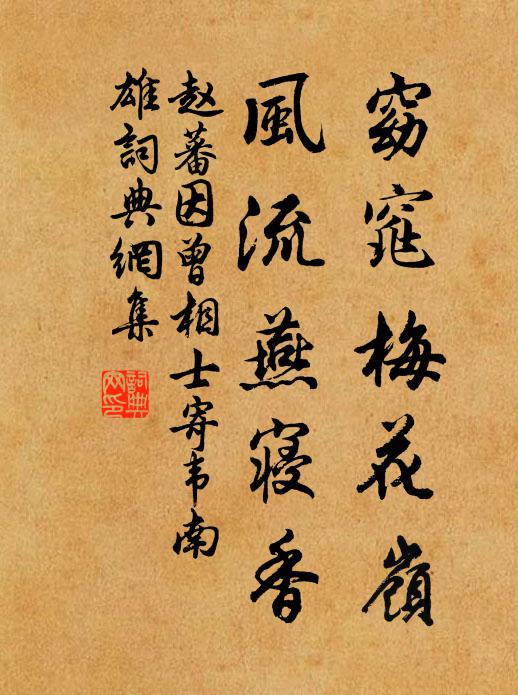 窈窕梅花嶺
風流燕寢香
赵蕃因曾相士寄韦南
雄詞典網集
詞典
网印